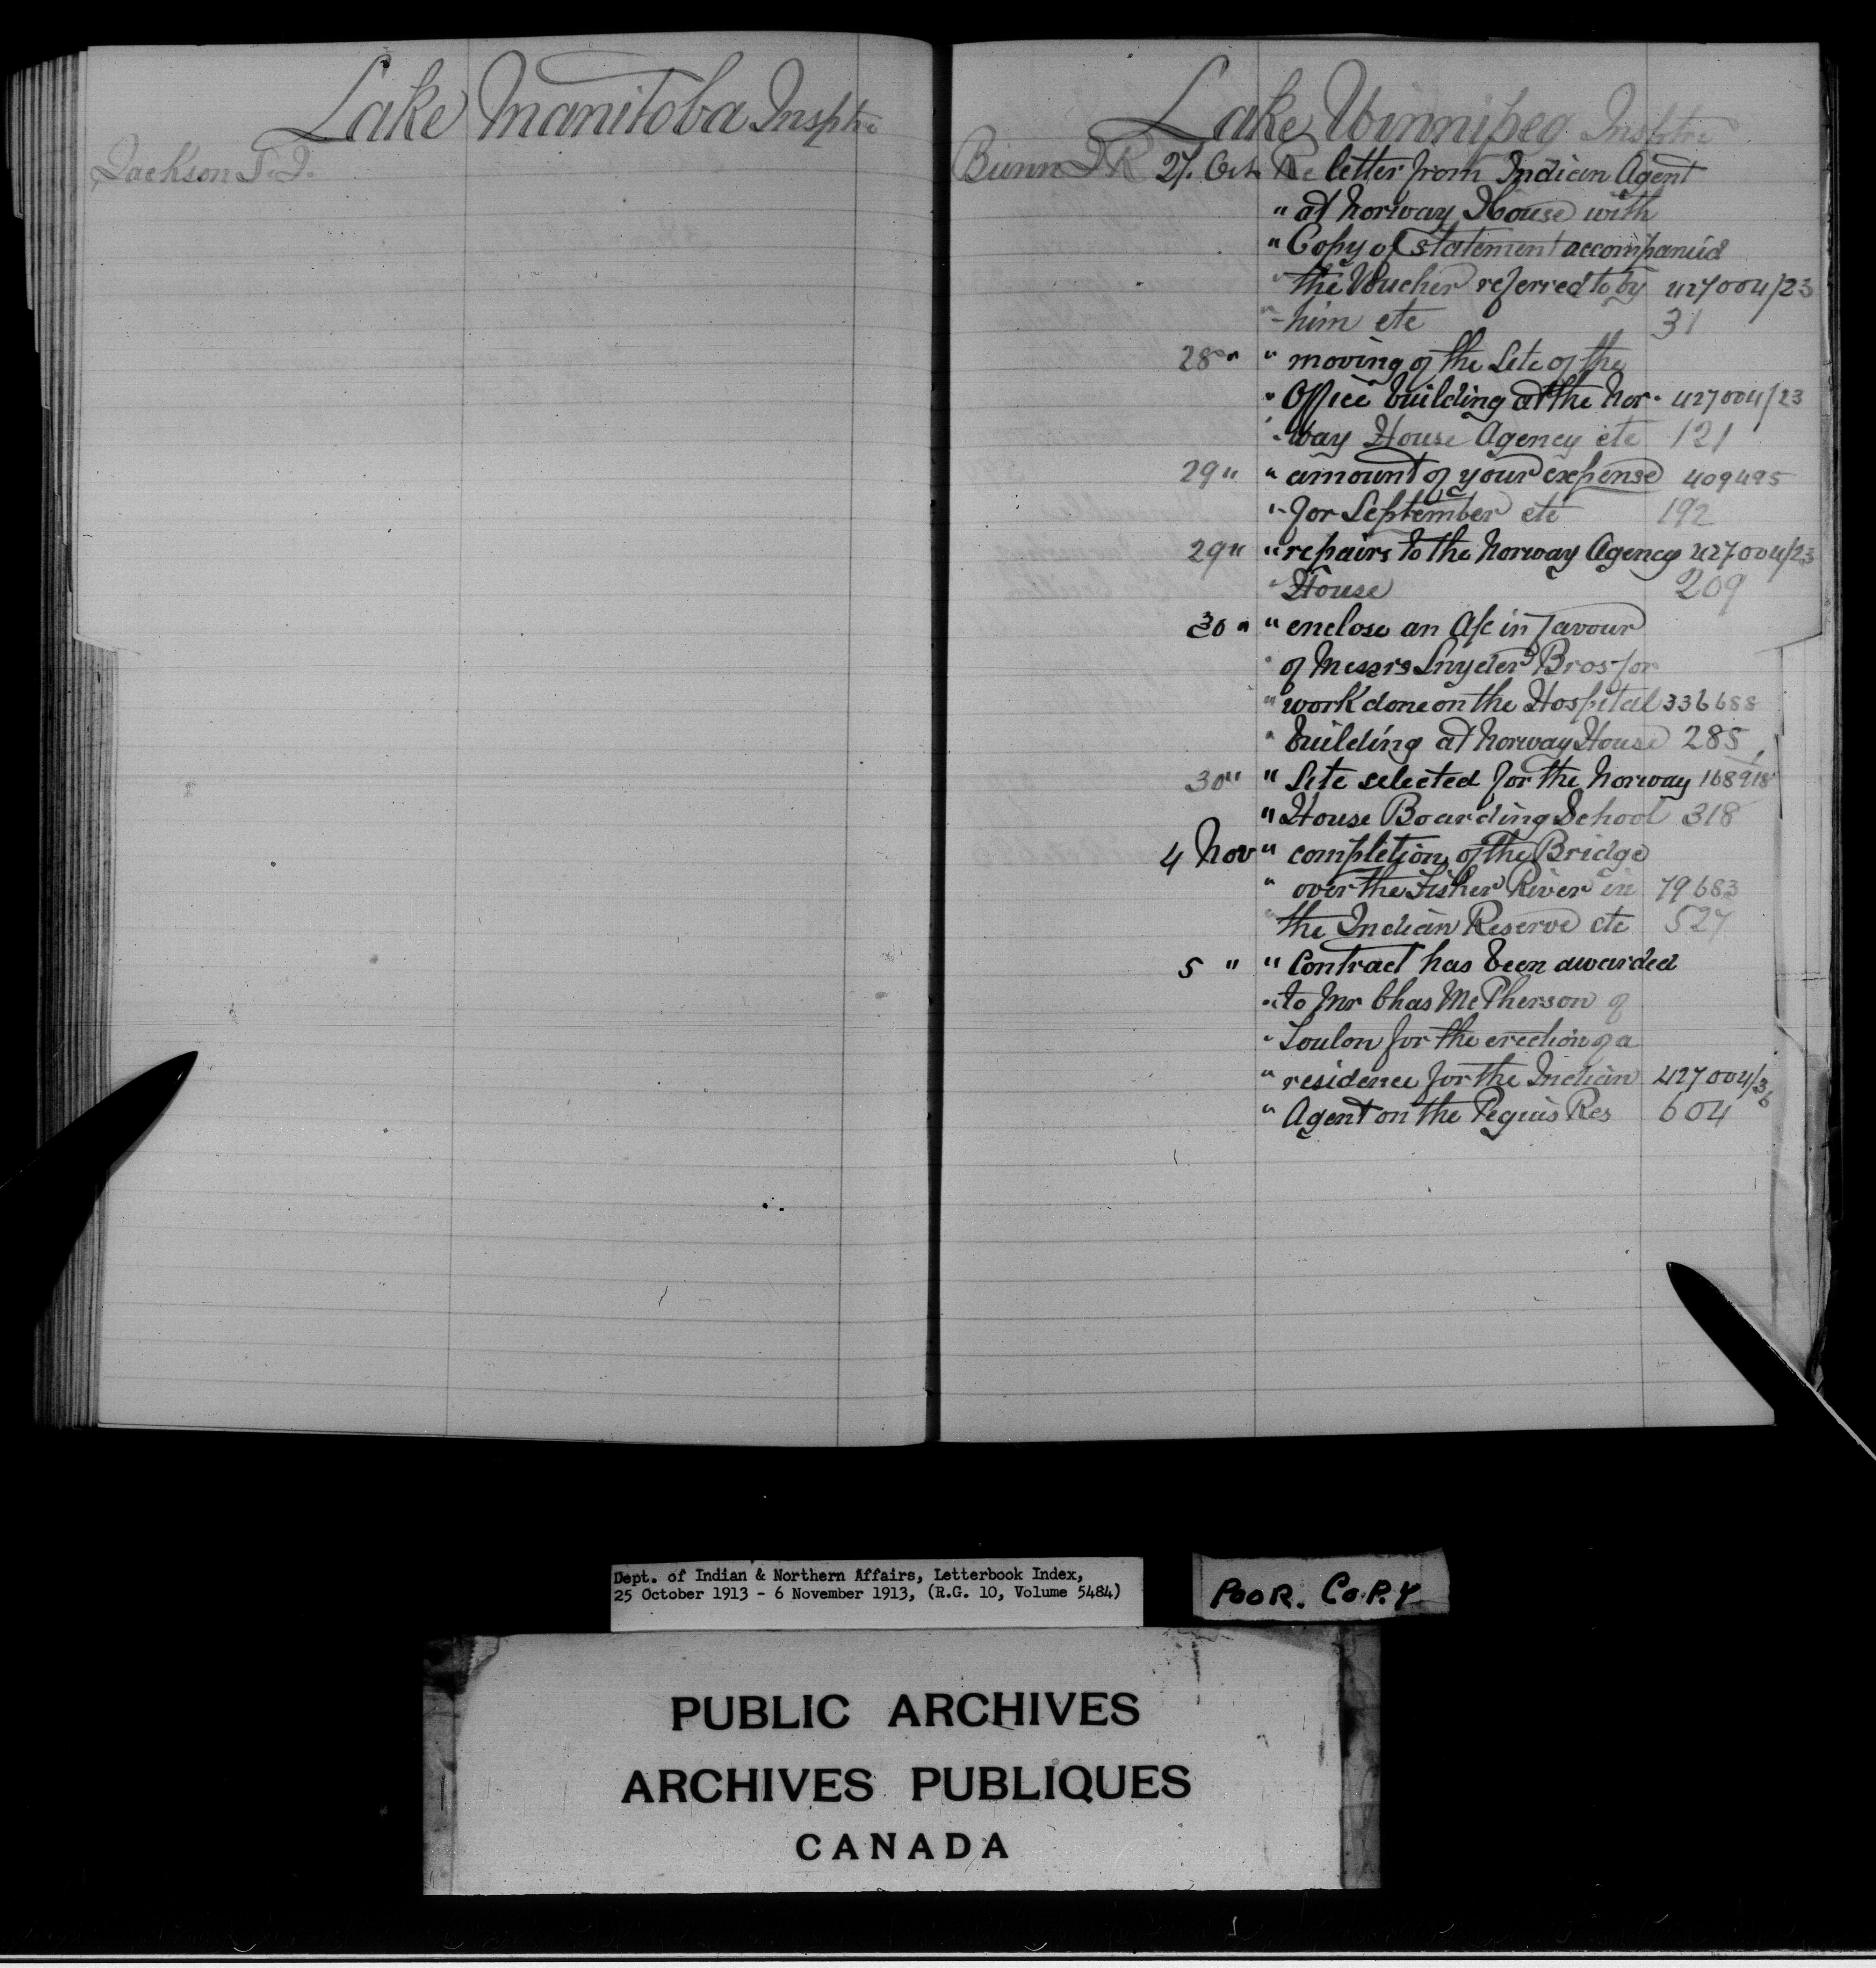 Lake Manitoba Insptre
Jackson S.J.
Lake Winnipeg Insptre
Bunn J R 27. Oct. Re letter from Indian Agent
" at Norway House with
" Copy of statement accompanied
" the Voucher referred to by 427004/23
" him etc 31
28 " " moving of the Site of the
" Office building at the Nor- 427004/23
" way House Agency etc 121
29 " " amount of your expense 409495
" for September etc 192
29 " " repairs to the Norway Agency 427004/23
" House 209
30 " " enclose an A/c in favour
" of Messrs Snyder Bros for
" work done on the Hospital 336688
" building at Norway House 285
30 " " Site selected for the Norway 168918
" House Boarding School 318
4 Nov " completion of the Bridge
" over the Fisher River in 79683
" the Indian Reserve etc 527
5 " " Contract has been awarded
" to Mr Chas McPherson of
" Toulon for the erection of a
" residence for the Indian 427004/36
" Agent on the Peguis Res 604
Dept. of Indian & Northern Affairs, Letterbook Index,
25 October 1913 - 6 November 1913, (R.G. 10, Volume 5484)
POOR. COPY
PUBLIC ARCHIVES
ARCHIVES PUBLIQUES
CANADA